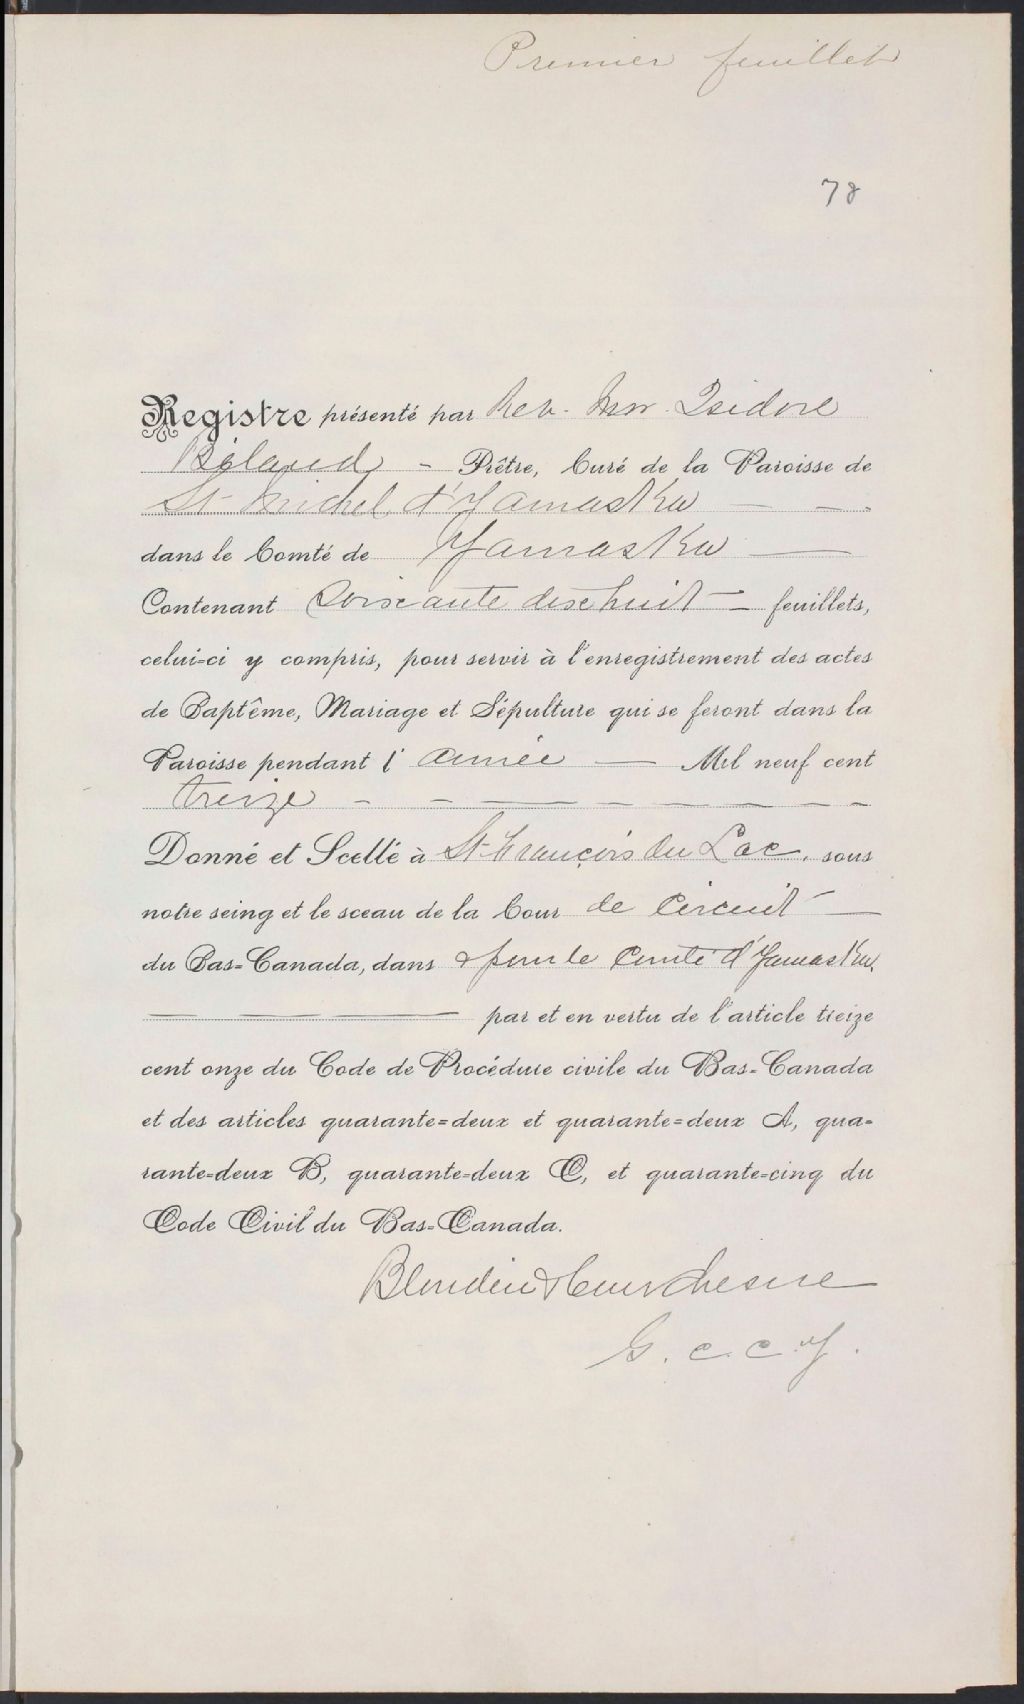 Premier feuillet
78
Registre présenté par Rev. Mr. Isidore
Béland - Prêtre, Curé de la Paroisse de
St Michel d'Yamaska
dans le Comté de Yamaska
Contenant Soixante dix huit feuillets,
celui-ci y compris, pour servir à l'enregistrement des actes
de Baptême, Mariage et Sépulture qui se feront dans la
Paroisse pendant l'année Mil neuf cent
treize
Donné et Scellé à St François du Lac, sous
notre seing et le sceau de la Cour de Circuit
du Bas-Canada, dans & pour le Comté d'Yamaska,
par et en vertu de l'article treize
cent onze du Code de Procédure civile du Bas-Canada
et des articles quarante-deux et quarante-deux A, qua-
rante-deux B, quarante-deux C, et quarante-cinq du
Code Civil du Bas-Canada.
Blondin & Courchesne
G. C. C. Y.